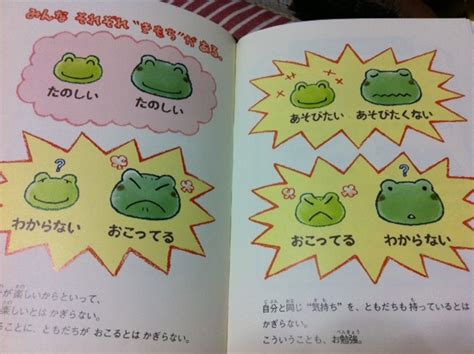 みんな それぞれ "きもち"が ある。
たのしい
たのしい
わからない
おこってる
が楽しいからといって、
楽しいとは かぎらない。
ことに、ともだちが おこるとは かぎらない。
あそびたい
あそびたくない
おこってる
わからない
自分と同じ "気持ち" を、ともだちも 持っているとは
かぎらない。
こういうことも、お勉強。